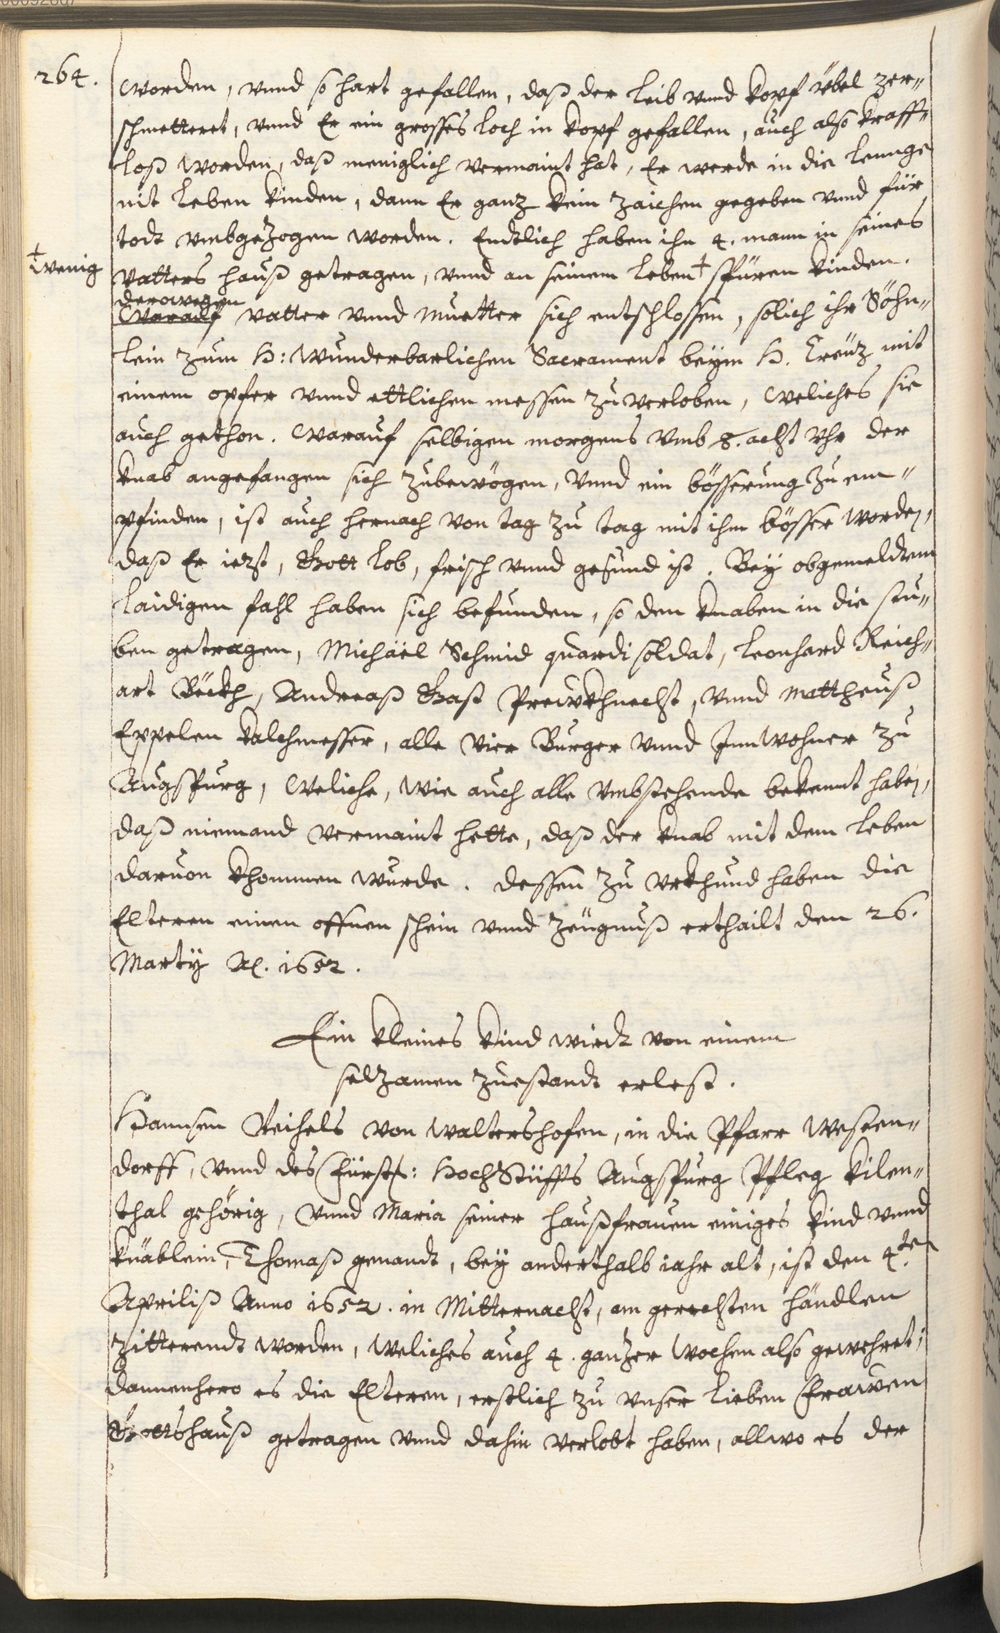 264.
worden, vnnd so hart gefallen, daß der leib vnnd kopf übel zer=
schmetteret, vnnd Er ein grosses loch in kopf gefallen, auch also krafft=
loß worden, daß meniglich vermaint hat, Er werde in die lennge
nit leben kinden, dann Er ganz kein zaichen gegeben vnnd für
todt vmbgezogen worden. Endtlich haben ihn 4. mann in seines
† wenig
vatters hauß getragen, vnnd an seinem leben † spüren kinden.
derowegen
Warauf vatter vnnd muetter sich entschlossen, solich ihr Söhn=
lein zum H: Wunderbarlichen Sacrament beym H. Creüz mit
einem opfer vnnd ettlichen messen zuverloben, weliches sie
auch gethon. Warauf selbigen morgens vmb 8. acht vhr der
knab angefangen sich zubewögen, vnnd ein bösserung zu em=
pfinden, ist auch hernach von tag zu tag mit ihm bösser worden,
daß Er iezt, Gott lob, frisch vnnd gesund ist. Bey obgemeldtem
laidigen fahl haben sich befunden, so den knaben in die stu=
ben getragen, Michäel Schmid quardi soldat, leonhard Reich=
art Böckh, Andreaß Gast Preükhnecht, vnnd Mattheuß
Eppelen kalchmesser, alle vier Burger vnnd Innwohner zu
Augspurg, Weliche, wie auch alle vmbstehende bekennt haben,
daß niemand vermaint hette, daß der knab mit dem leben
daruon khommen wurde. dessen zu vrkhund haben die
Elteren einen offnen schein vnnd zeügnuß erthailt den 26.
Martij A. 1652.
Ein kleines kind wirdt von einem
selzamen zuestandt erlest.
Hannsen Reihels von Waltershofen, in die Pfarr Westen=
dorff, vnnd des Fürstl: HochStüffts Augspurg Pfleg kilen=
thal gehörig, vnnd Maria seiner haußfrauen einiges kind vnnd
knäblein, Thomaß genandt, bey anderthalb iahr alt, ist den 4.ten
Apriliß Anno 1652. in Mitternacht, am gerechten händlen
zitterendt worden, weliches auch 4. ganzer wochen also gewehret,
dannenhero es die Elteren, erstlich zu vnser lieben Frawen
Gottshauß getragen vnnd dahin verlobt haben, allwo es der